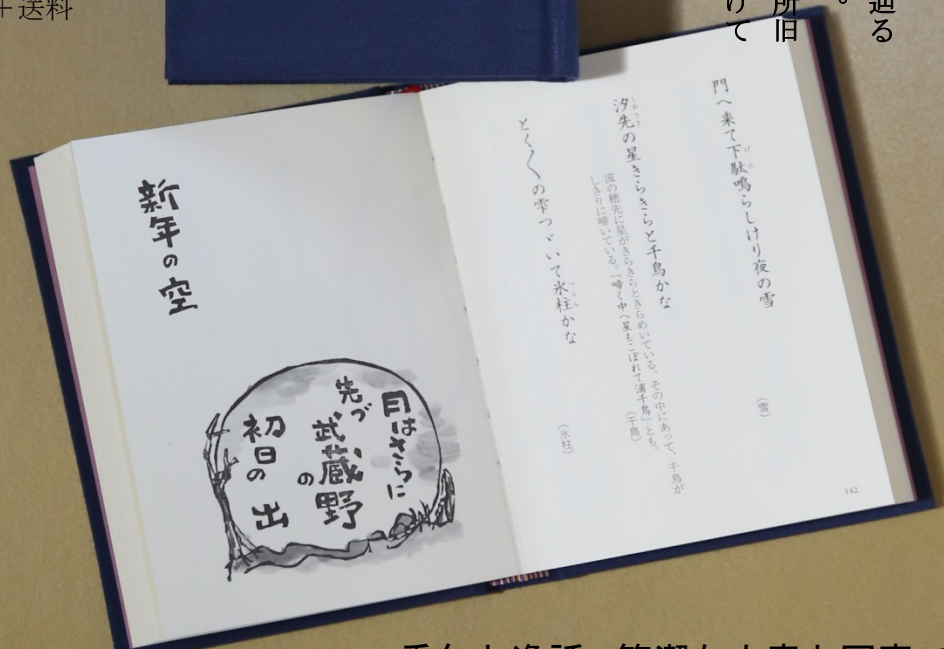 ＋送料
遡る
。
所旧
けて
門へ来て下駄鳴らしけり夜の雪
（雪）
汐先の星きらきらと千鳥かな
（千鳥）
波の穂先に星がきらきらときらめいている。その中にあって、千鳥が
しきりに啼いている。「啼く中へ星もこぼれて浦千鳥」とも。
とく〱の雫つゞいて氷柱かな
（氷柱）
142
新年の空
月はさらに
先づ
武蔵野
の
初日の
出